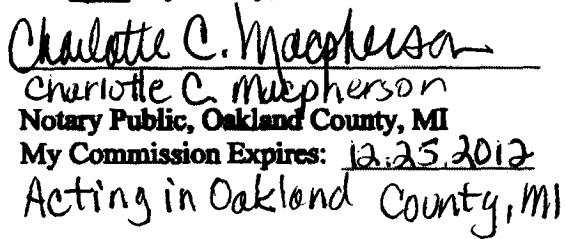 Charlotte C. Macpherson
Charlotte C. Macpherson
Notary Public, Oakland County, MI
My Commission Expires: 12.25.2012
Acting in Oakland County, MI